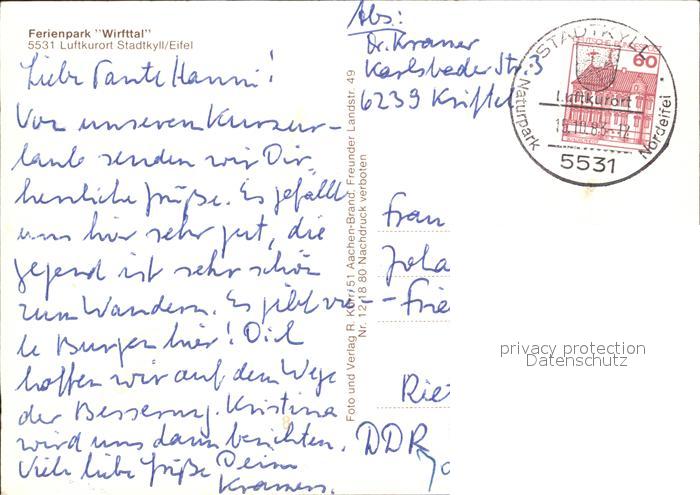 Ferienpark "Wirfttal"
5531 Luftkurort Stadtkyll/Eifel
Liebe Tante Hanni!
Von unserem Kurzur-
laub senden wir Dir
herzliche Grüße. Es gefällt
uns hier sehr gut, die
Gegend ist sehr schön
zum Wandern. Es gibt vie-
le Burgen hier! Dich
hoffen wir auf dem Wege
der Besserung. Kristina
wird uns dann berichten.
Viele liebe Grüße Deine
Kramers.
Foto und Verlag R. 51 Aachen-Brand, Freunder Landstr. 49
Nr. 12 18 80 Nachdruck verboten
Abs:
Dr. Kramer
Karlsbader Str. 3
6239 Kriftel
STADTKYLL
DEUTSCHE BUNDESPOST
60
Luftkurort
Naturpark
Nordeifel
5531
Frau
Joha
Frie
Rie
DDR
privacy protection
Datenschutz